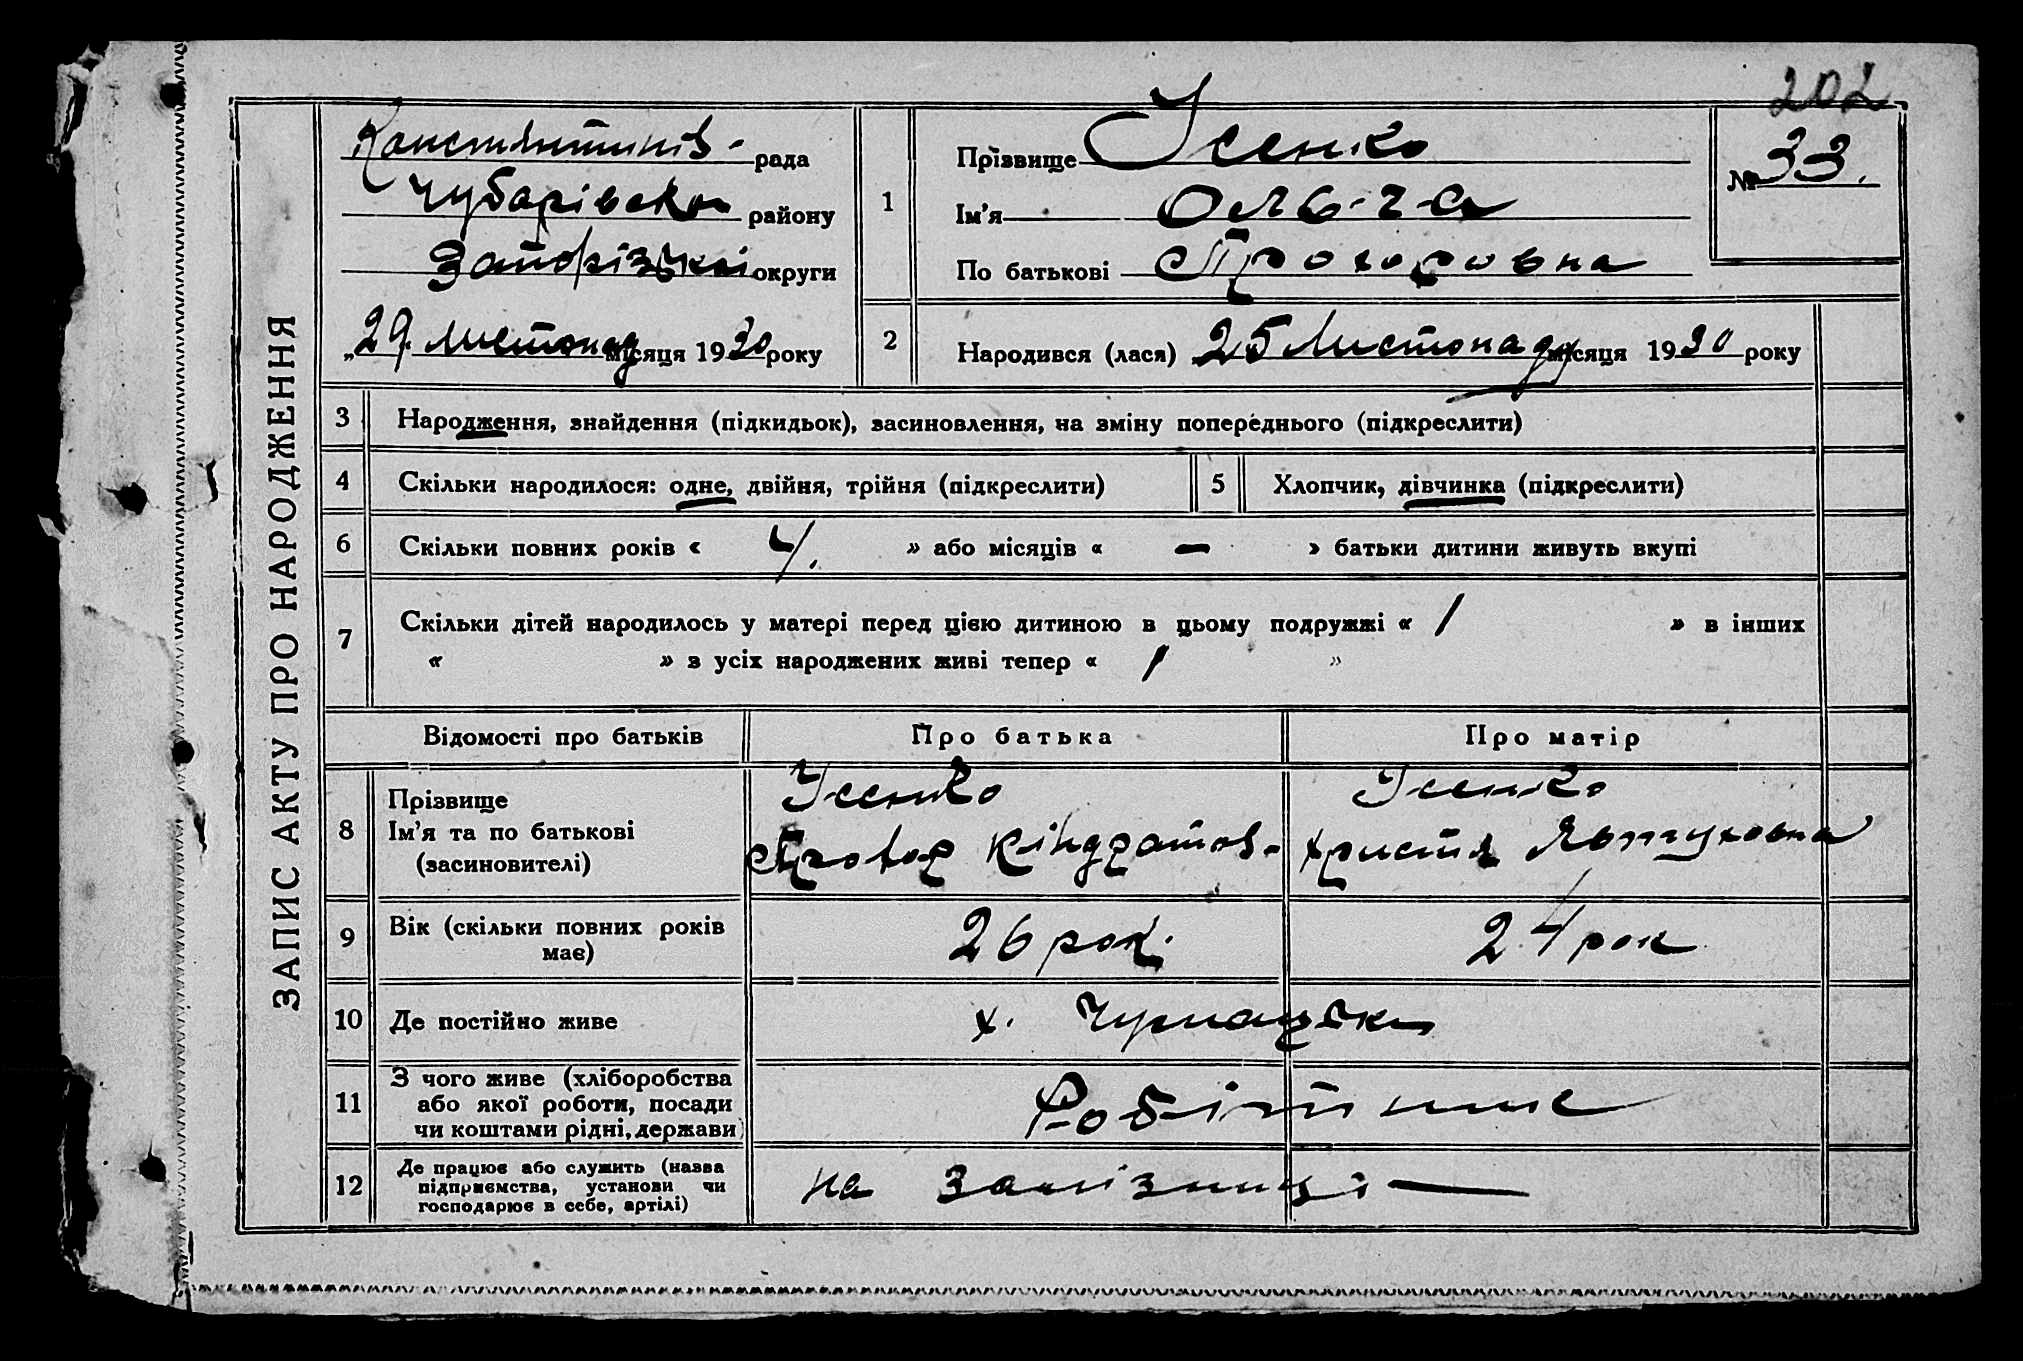 202
ЗАПИС АКТУ ПРО НАРОДЖЕННЯ
Констянтинів- рада
Чубарівськ району
Запорізької округи
„29 листопад місяця 1930 року
1
Прізвище Усенко
Ім'я Ольга
По батькові Прохоровна
№ 33.
2
Народився (лася) 25 Листопаду місяця 1930 року
3 Народження, знайдення (підкидьок), засиновлення, на зміну попереднього (підкреслити)
4 Скільки народилося: одне, двійня, трійня (підкреслити) 5 Хлопчик, дівчинка (підкреслити)
6 Скільки повних років « 4. » або місяців « – » батьки дитини живуть вкупі
7 Скільки дітей народилось у матері перед цією дитиною в цьому подружжі « 1 » в інших
« » з усіх народжених живі тепер « 1 »
Відомості про батьків Про батька Про матір
8
Прізвище Усенко Усенко
Ім'я та по батькові Прохор Кіндратов- Христя
(засиновителі)
9 Вік (скільки повних років має) 26 рок. 24 рок
10 Де постійно живе х.
11 З чого живе (хліборобства
або якої роботи, посади Робітниче
чи коштами рідні, держави)
12 Де працює або служить (назва
підприємства, установи чи на залізниці —
господарює в себе, артілі)